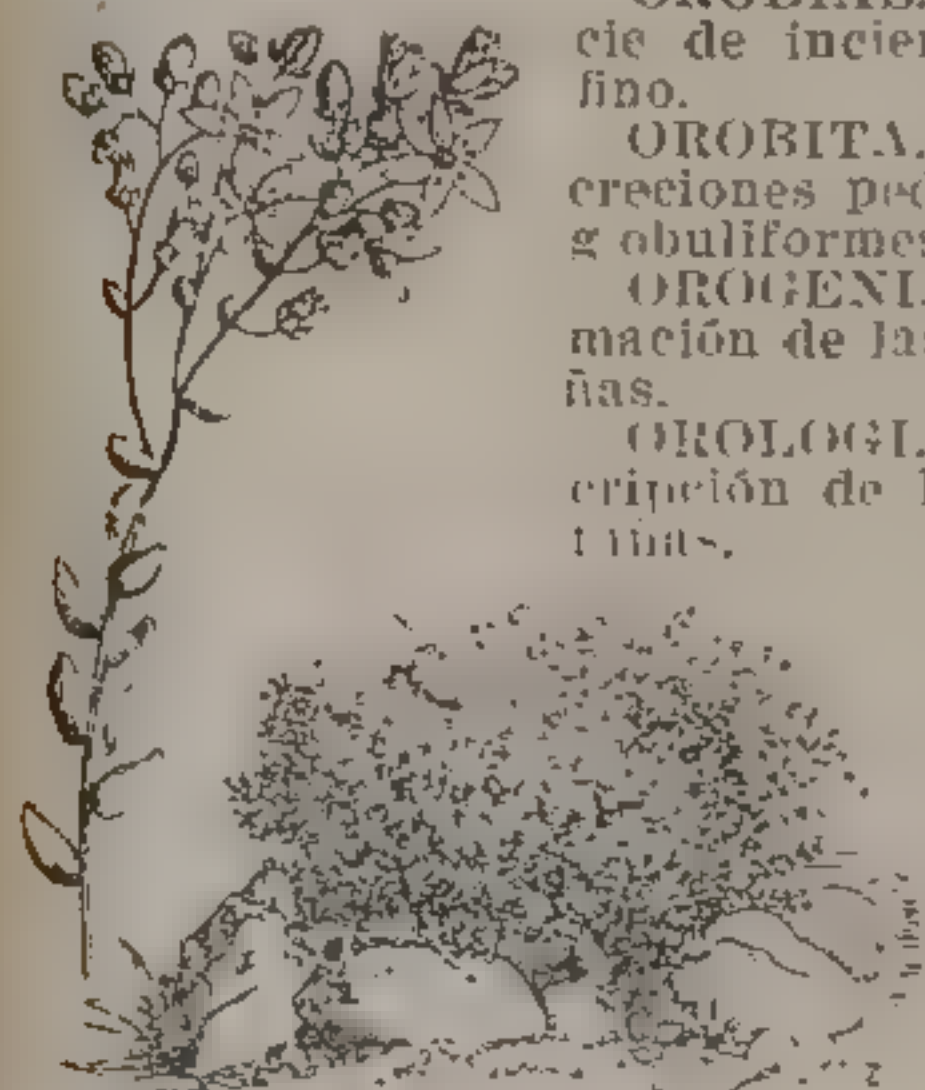 cie de incier
fino.
OROBITA.
creciones ped
g obuliformes
OROGENI
mación de las
ñas.
OROLOGI
cripción de